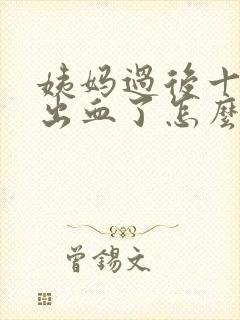 姨妈過後十
出血了怎麼
曾錫文